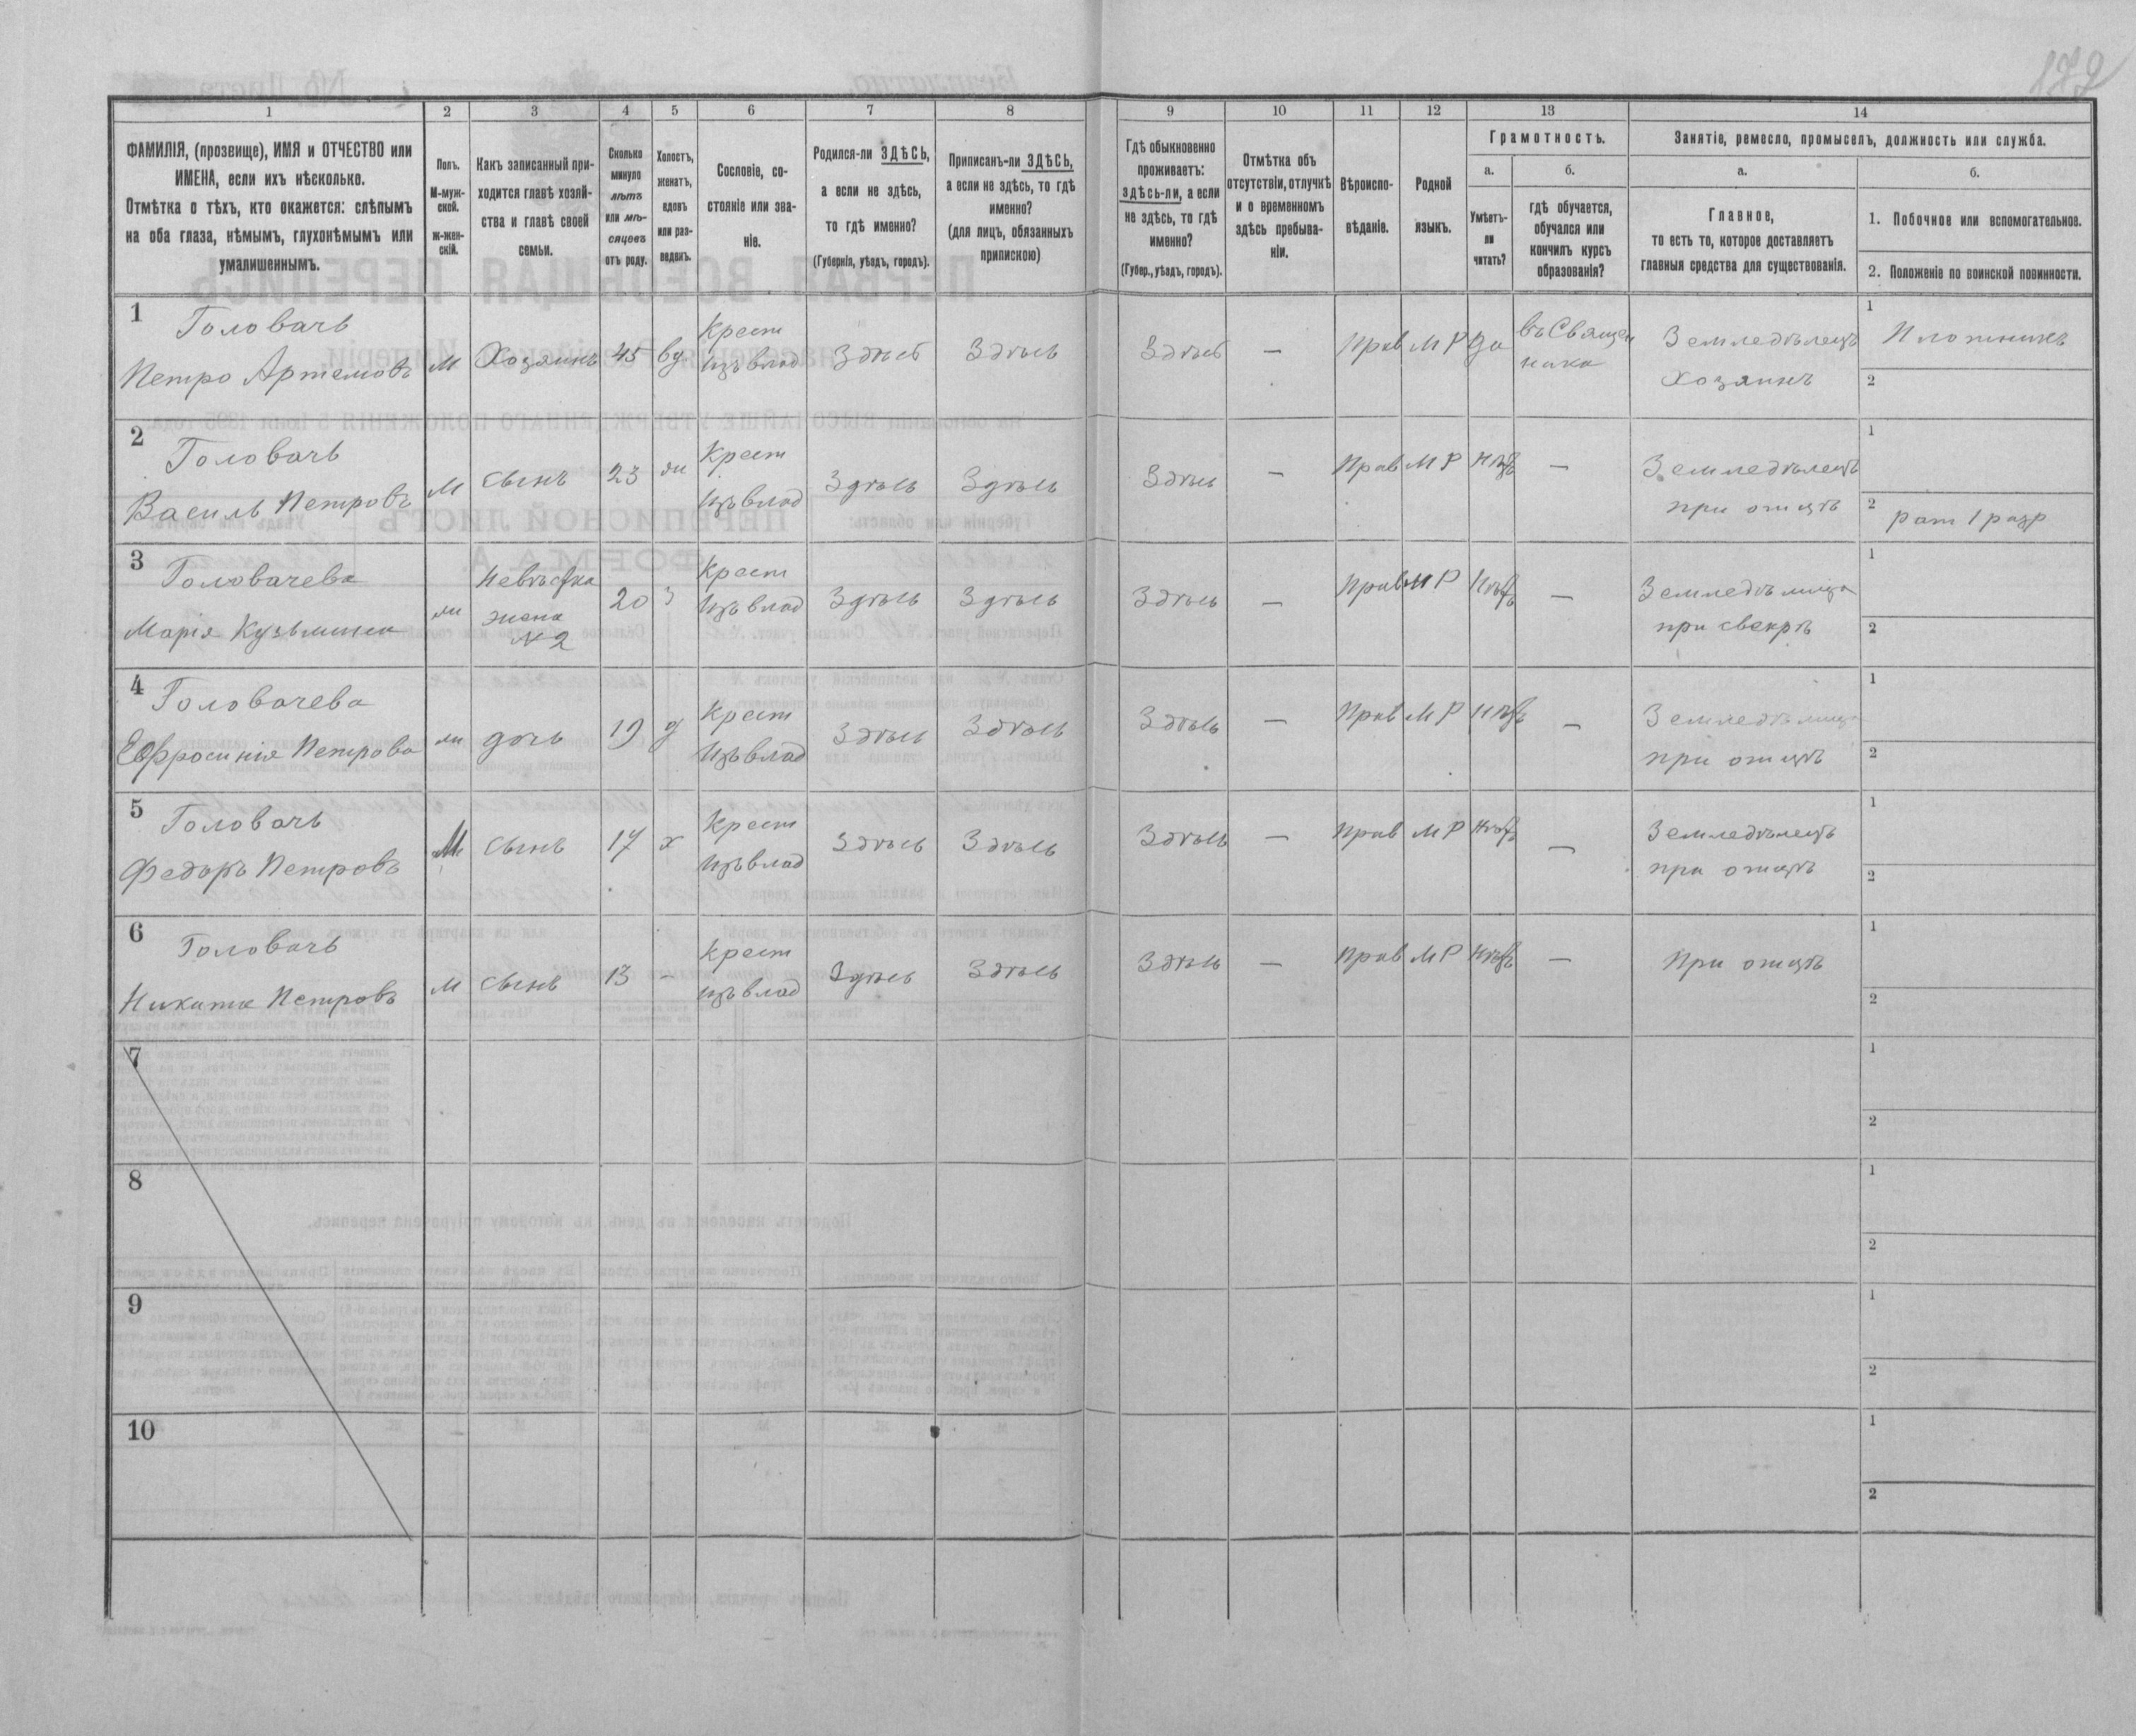 179
1
2
3
4
5
6
7
8
9
10
11
12
13
14
ФАМИЛІЯ, (прозвище), ИМЯ и ОТЧЕСТВО или
ИМЕНА, если ихъ нѣсколько.
Отмѣтка о тѣхъ, кто окажется: слѣпымъ
на оба глаза, нѣмымъ, глухонѣмымъ или
умалишеннымъ.
Полъ.
М-муж-
ской.
Ж-жен-
скій.
Какъ записанный при-
ходится главѣ хозяй-
ства и главѣ своей
семьи.
Сколько
минуло
лѣтъ
или мѣ-
сяцевъ
отъ роду.
Холостъ,
женатъ,
вдовъ
или раз-
веденъ.
Сословіе, со-
стояніе или зва-
ніе.
Родился-ли ЗДѢСЬ,
а если не здѣсь,
то гдѣ именно?
(Губернія, уѣздъ, городъ).
Приписанъ-ли ЗДѢСЬ,
а если не здѣсь, то гдѣ
именно?
(для лицъ, обязанныхъ
припискою)
Гдѣ обыкновенно
проживаетъ:
здѣсь-ли, а если
не здѣсь, то гдѣ
именно?
(Губер., уѣздъ, городъ).
Отмѣтка объ
отсутствіи, отлучкѣ
и о временномъ
здѣсь пребыва-
ніи.
Вѣроиспо-
вѣданіе.
Родной
языкъ.
Грамотность.
а.
Умѣетъ-
ли
читать?
б.
гдѣ обучается,
обучался или
кончилъ курсъ
образованія?
Занятіе, ремесло, промыселъ, должность или служба.
а.
Главное,
то есть то, которое доставляетъ
главныя средства для существованія.
б.
1. Побочное или вспомогательное.
2. Положеніе по воинской повинности.
1
Головачь
Петро Артемовъ
М
Хозяинъ
45
вд.
Крест
изъ влад
Здѣсь
Здѣсь
Здѣсь
—
Прав
М Р
да
въ Свящеи
ника
Земледѣлецъ
Хозяинъ
1
Плотникъ
2
2
Головачь
Василь Петровъ
М
сынъ
23
Крест
изъ влад
Здѣсь
Здѣсь
Здѣсь
—
Прав
М Р
нѣтъ
—
Земледѣлецъ
при отцѣ
1
2
рат 1 разр
3
Головачева
Марія Кузьмина
жи
Невѣстка
жена
№ 2
20
з
Крест
изъ влад
Здѣсь
Здѣсь
Здѣсь
—
Прав
М Р
нѣтъ
—
Земледѣлица
при свекрѣ
1
2
4
Головачева
Евфросинія Петрова
жи
дочь
19
д
Крест
изъ влад
Здѣсь
Здѣсь
Здѣсь
—
Прав
М Р
нѣтъ
—
Земледѣлица
при отцѣ
1
2
5
Головачь
Федоръ Петровъ
М
сынъ
17
х
Крест
изъ влад
Здѣсь
Здѣсь
Здѣсь
—
Прав
М Р
нѣтъ
—
Земледѣлецъ
при отцѣ
1
2
6
Головачь
Никита Петровъ
М
сынъ
13
—
Крест
изъ влад
Здѣсь
Здѣсь
Здѣсь
—
Прав
М Р
нѣтъ
—
При отцѣ
1
2
7
1
2
8
1
2
9
1
2
10
1
2